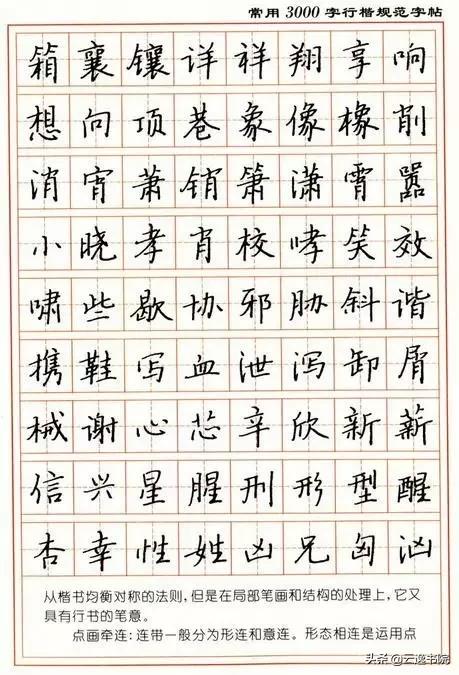 常用3000字行楷规范字帖
箱襄镶详祥翔享响
想向项巷象像橡削
消宵萧销箫潇霄嚣
小晓孝肖校哮笑效
啸些歇协邪胁斜谐
携鞋写血泄泻卸屑
械谢心芯辛欣新薪
信兴星腥刑形型醒
杏幸性姓凶兄匈汹
从楷书均衡对称的法则,但是在局部笔画和结构的处理上,它又
具有行书的笔意。
点画牵连:连带一般分为形连和意连。形态相连是运用点
头条@云逸书院